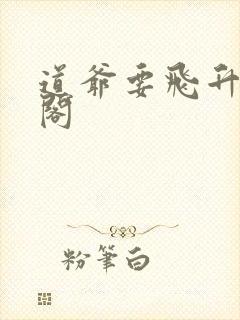 道爷要飞升
阁
粉筆白